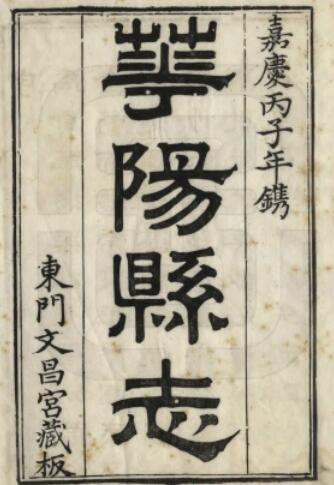 嘉慶丙子年鐫
華陽縣志
東門文昌宮藏板